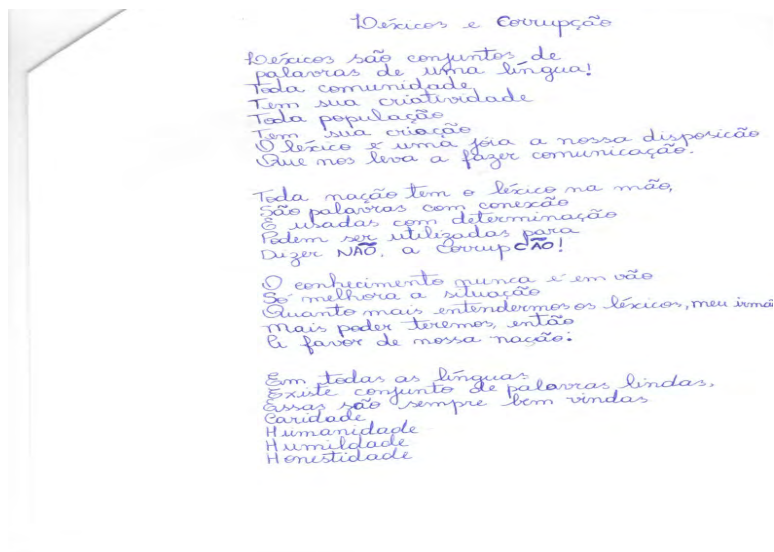 Léxicos e Corrupção
Léxicos são conjuntos de
palavras de uma língua!
Toda comunidade
Tem sua criatividade
Toda população
Tem sua criação
O léxico é uma jóia a nossa disposição
Que nos leva a fazer comunicação.
Toda nação tem o léxico na mão,
São palavras com conexão
E usadas com determinação
Podem ser utilizadas para
Dizer NÃO, a CorrupÇÃO!
O conhecimento nunca é em vão
Só melhora a situação
Quanto mais entendermos os léxicos, meu irmã
Mais poder teremos, então
A favor de nossa nação.
Em todas as línguas
Existe conjunto de palavras lindas,
Essas são sempre bem vindas
Caridade
Humanidade
Humildade
Honestidade